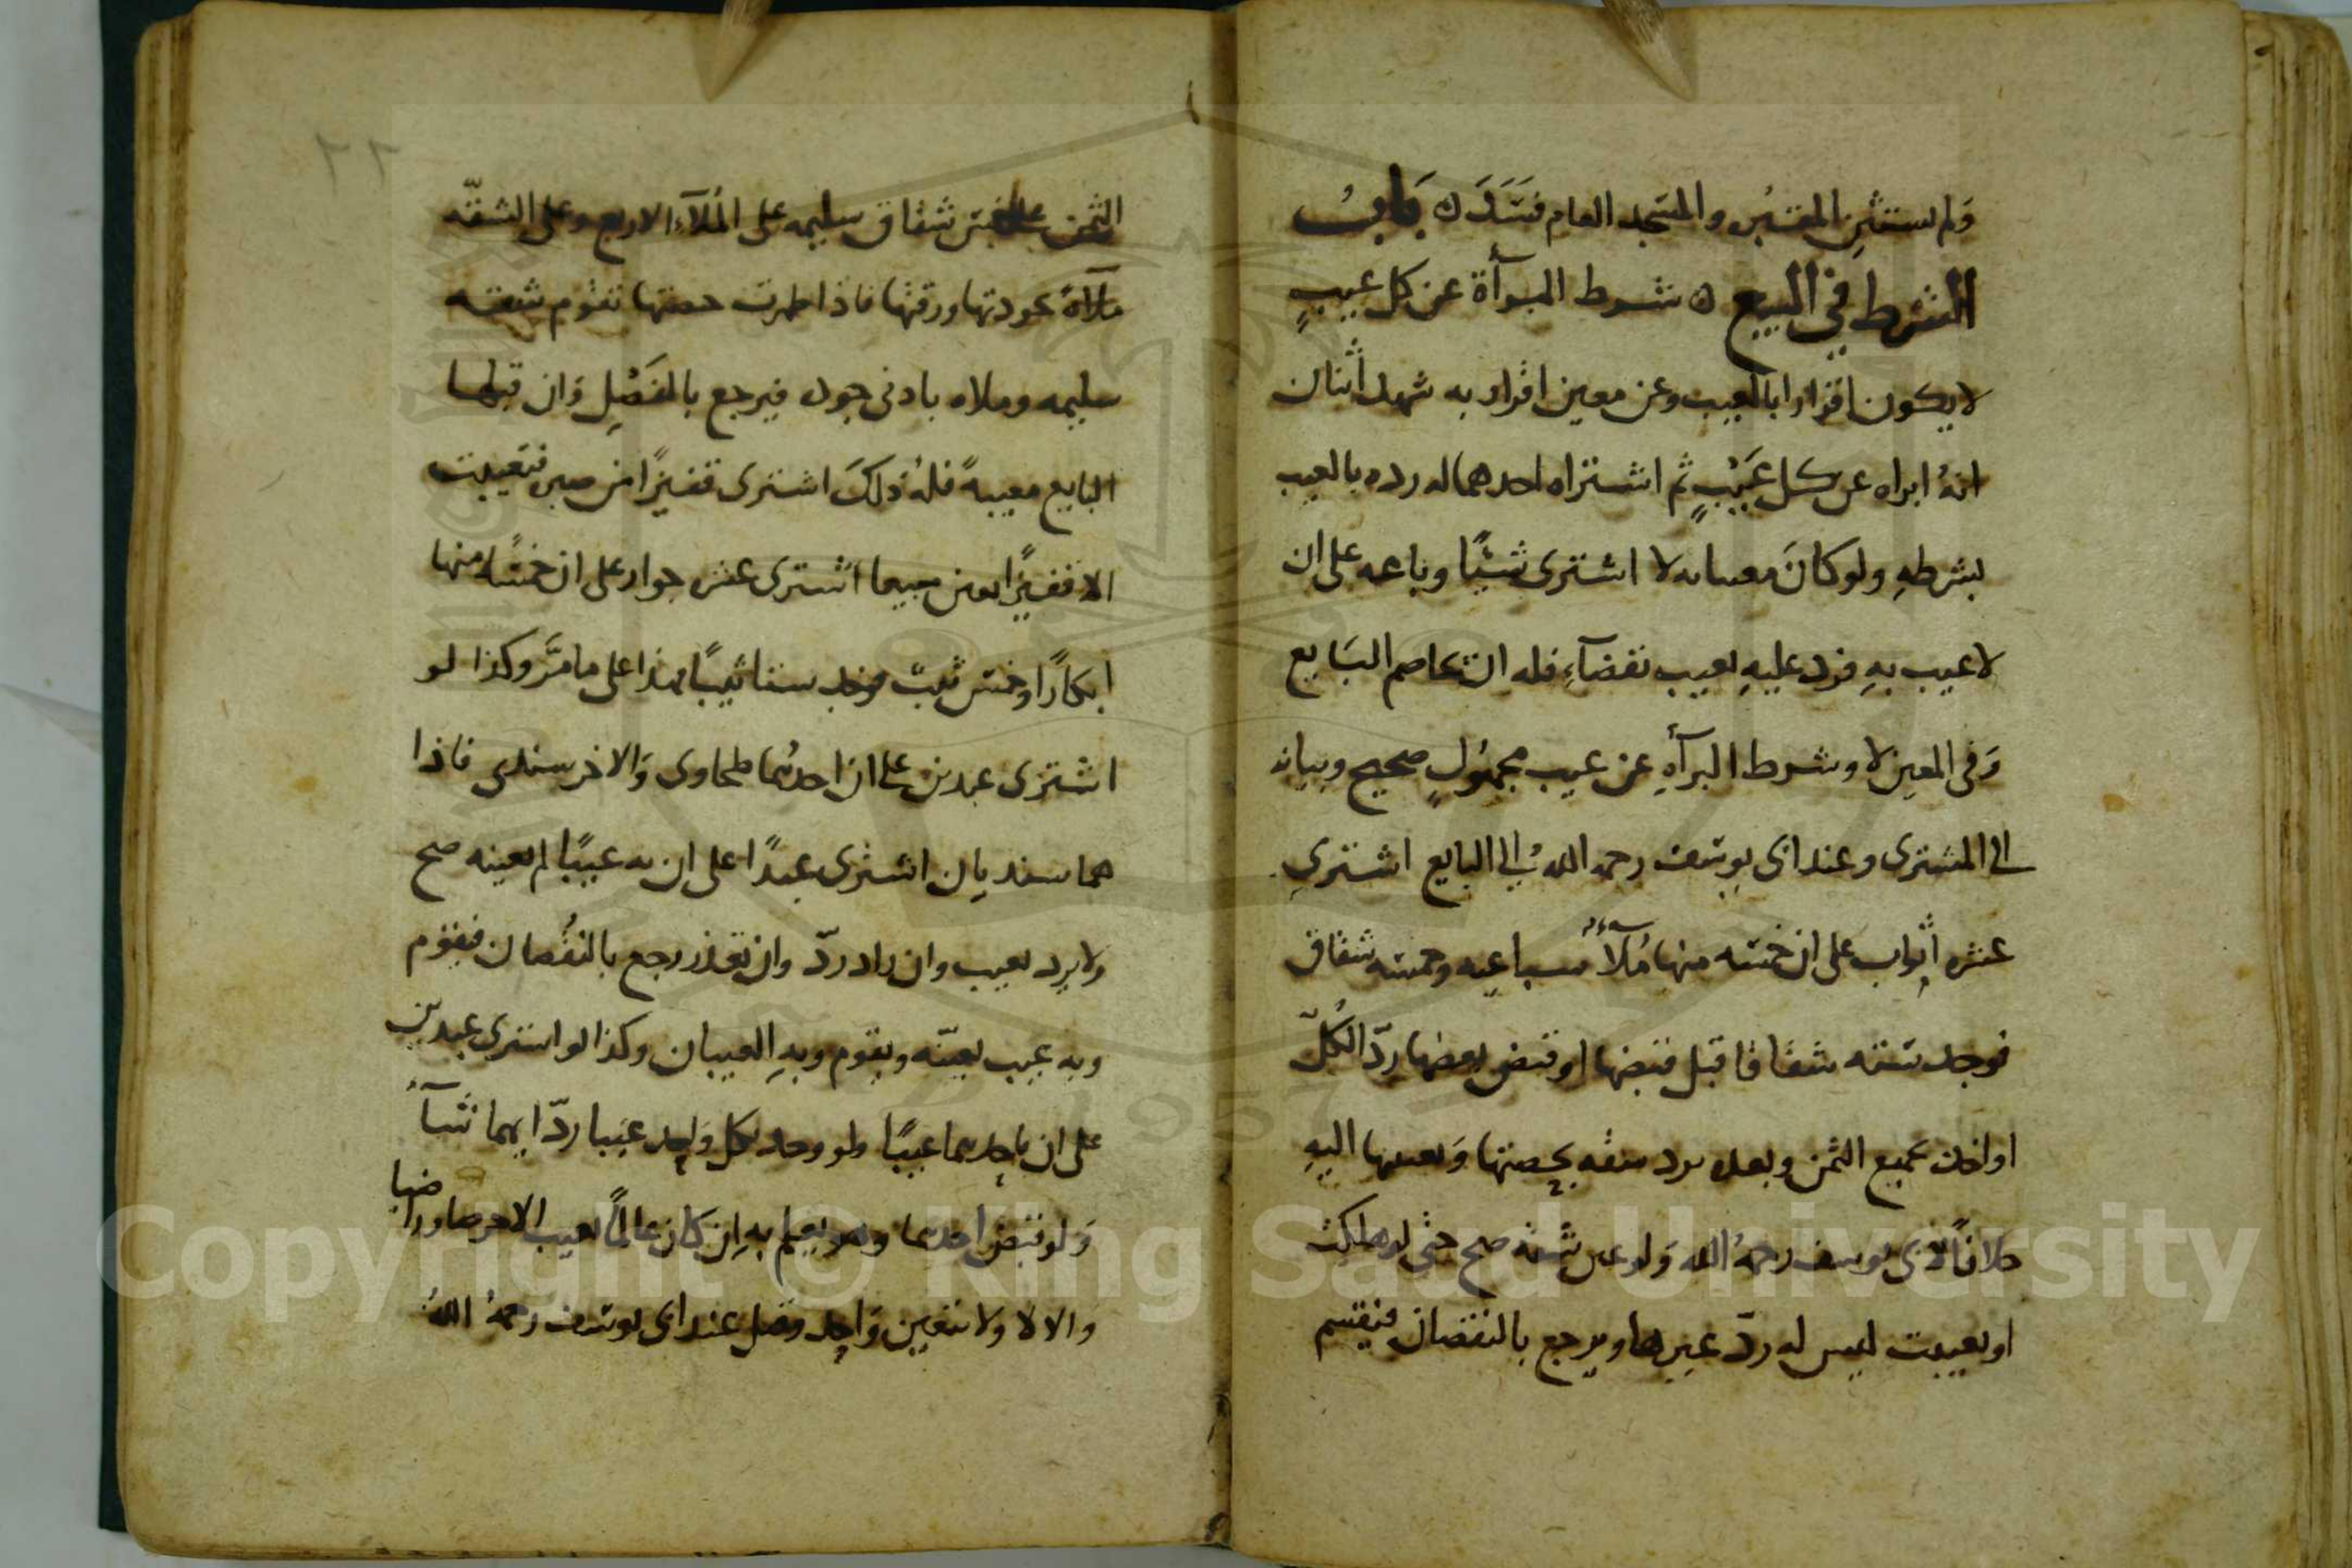 ولم يستثن المقبره والمسجد العام فسد ه بابُ
الشرط في البيع ه شرط البرآة عن كل عيبٍ
لا يكون اقرارا بالعيب وعن معين اقرار به شهد اثنان
انهُ ابراه عن كل عَيْبٍ ثم اشتراه احدهما له رده بالعيب
بشرطهِ ولو كانَ معينا به لا اشترى شيئًا وباعه على ان
لا عيب بهِ فرد عليهِ بعيب بقضآءِ فله ان يخاصم البَايع
وَفي المعين لا وشرط البرآهِ عن عيب مجهُولٍ صحيح وبيانه
الى المشترى وعند ابى يوسف رحمه اللهُ الى البايع اشترى
عشره اثواب على ان خمسَه منها مُلآءٌ سباعيه وخمسه شقاق
فوجد ستَّه شقاقا قبل قبضها او قبض بعضها ردّ الكُلّ
او اخذ بجميع الثمن وبعده يرد شقه بحصتها وَبعيبها اليهِ
خلافًا لابى يوسف رحمهُ الله وَلو عين شقه صح حتى لو هلكت
او تعيبت ليس له ردّ غيرها ويرجع بالنقصان فيقسم
الثمن على خمس شقاق سليمه على المُلآءِ الاربع وعلى الشقّه
ملآةً بجودتها ورقتها فاذا ظهرت حصتها تقوم شقه
سليمه وملاه بادنى جوده فيرجع بالفَضْلِ وَان قبلها
البايع معيبهً فلهُ ذلكَ اشترى قفيزًا من صبره فتعيبت
الا قفيزًا تعين جبيعا اشترى عشر جوار على ان خمسًا منها
ابكارًا وخمس ثيبٌ فوجد ستا ثيبًا فهذا على ما مَرَّ وكذا لو
اشترى عبدين على ان احدهُما طحاوى وَالاخر سندى فاذا
هما سنديان اشترى عبدًا على ان به عيبًا لم يعينه صح
ولا يرد بعيب وان زاد ردّ وان تعذر رجع بالنقُصان فيقوم
وبه عيب بعينّه ويقوم وبهِ العيبان وكذا لو اشترى عبدين
على ان باحدهما عيبًا ولو وجد بكل وَاحد عيَبا ردّ ايهما شَآءَ
وَلو قبض احدهما وهو يعلم بهِ اِن كان عالمًا بعيب الاخر صار راضيا
والا لا ولا تتعين وَاحد وقيل عند ابى يوسف رحمهُ اللهُ